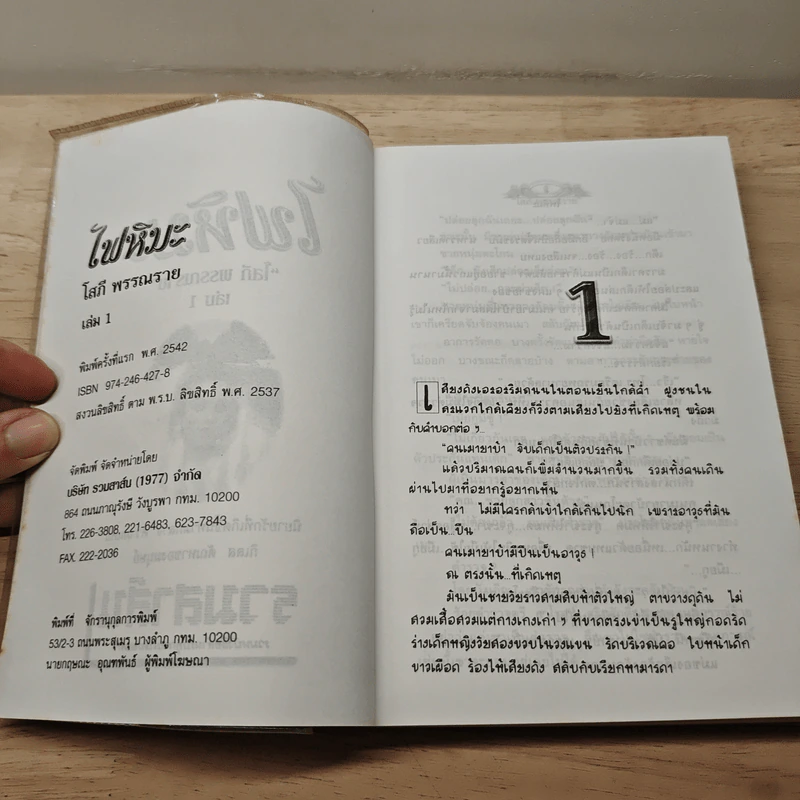 ไฟหิมะ
โสภี พรรณราย
เล่ม 1
พิมพ์ครั้งที่แรก พ.ศ. 2542
ISBN 974-246-427-8
สงวนลิขสิทธิ์ ตาม พ.ร.บ. ลิขสิทธิ์ พ.ศ. 2537
จัดพิมพ์ จัดจำหน่ายโดย
บริษัท รวมสาส์น (1977) จำกัด
864 ถนนภาณุรังษี วังบูรพา กทม. 10200
โทร. 226-3808, 221-6483, 623-7843
FAX. 222-2036
พิมพ์ที่ จักรานุกูลการพิมพ์
53/2-3 ถนนพระสุเมรุ บางลำภู กทม. 10200
นายกฤษณะ อุณฑพันธ์ ผู้พิมพ์โฆษณา
1
เสียงดังเอะอะริมถนนในตอนเย็นใกล้ค่ำ ฝูงชนใน
ละแวกใกล้เคียงก็วิ่งตามเสียงไปยังที่เกิดเหตุ พร้อม
กับคำบอกต่อ ๆ...
"คนเมายาบ้า จับเด็กเป็นตัวประกัน !"
แล้วปริมาณคนก็เพิ่มจำนวนมากขึ้น รวมทั้งคนเดิน
ผ่านไปมาที่อยากรู้อยากเห็น
ทว่า ไม่มีใครกล้าเข้าใกล้เกินไปนัก เพราะอาวุธที่มัน
ถือเป็น..ปืน
คนเมายาบ้ามีปืนเป็นอาวุธ !
ณ ตรงนั้น...ที่เกิดเหตุ
มันเป็นชายวัยราวสามสิบห้าตัวใหญ่ ตาขวางดุดัน ไม่
สวมเสื้อสวมแต่กางเกงเก่า ๆ ที่ขาดตรงเข่าเป็นรูใหญ่กอดรัด
ร่างเด็กหญิงวัยสองขวบในวงแขน รัดบริเวณคอ ใบหน้าเด็ก
ขาวเผือด ร้องไห้เสียงดัง สลับกับเรียกหามารดา